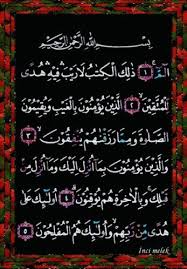 بِسْمِ اللهِ الرَّحْمٰنِ الرَّحِيمِ
الٓمٓ ﴿١﴾ ذٰلِكَ الْكِتٰبُ لَا رَيْبَ فِيهِ هُدًى
لِلْمُتَّقِينَ ﴿٢﴾ الَّذِينَ يُؤْمِنُونَ بِالْغَيْبِ وَيُقِيمُونَ
الصَّلٰوةَ وَمِمَّا رَزَقْنٰهُمْ يُنْفِقُونَ ﴿٣﴾
وَالَّذِينَ يُؤْمِنُونَ بِمَا أُنْزِلَ إِلَيْكَ وَمَا أُنْزِلَ مِنْ
قَبْلِكَ وَبِالْاٰخِرَةِ هُمْ يُوقِنُونَ ﴿٤﴾ أُولٰئِكَ عَلٰى
هُدًى مِنْ رَبِّهِمْ وَأُولٰئِكَ هُمُ الْمُفْلِحُونَ ﴿٥﴾
Inci melek